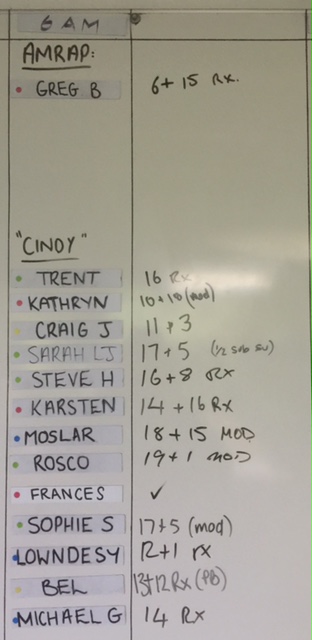 6 AM
AMRAP:
GREG B 6 + 15 Rx.
"CINDY"
TRENT 16 Rx
KATHRYN 10+10 (mod)
CRAIG J 11 + 3
SARAH LJ 17 + 5 (1/2 sub su)
STEVE H 16 + 8 Rx
KARSTEN 14 + 16 Rx
MOSLAR 18 + 15 MOD
ROSCO 19 + 1 MOD
FRANCES ✓
SOPHIE S 17+5 (mod)
LOWNDESY 12+1 rx
BEL 13+12 Rx (PB)
MICHAEL G 14 Rx